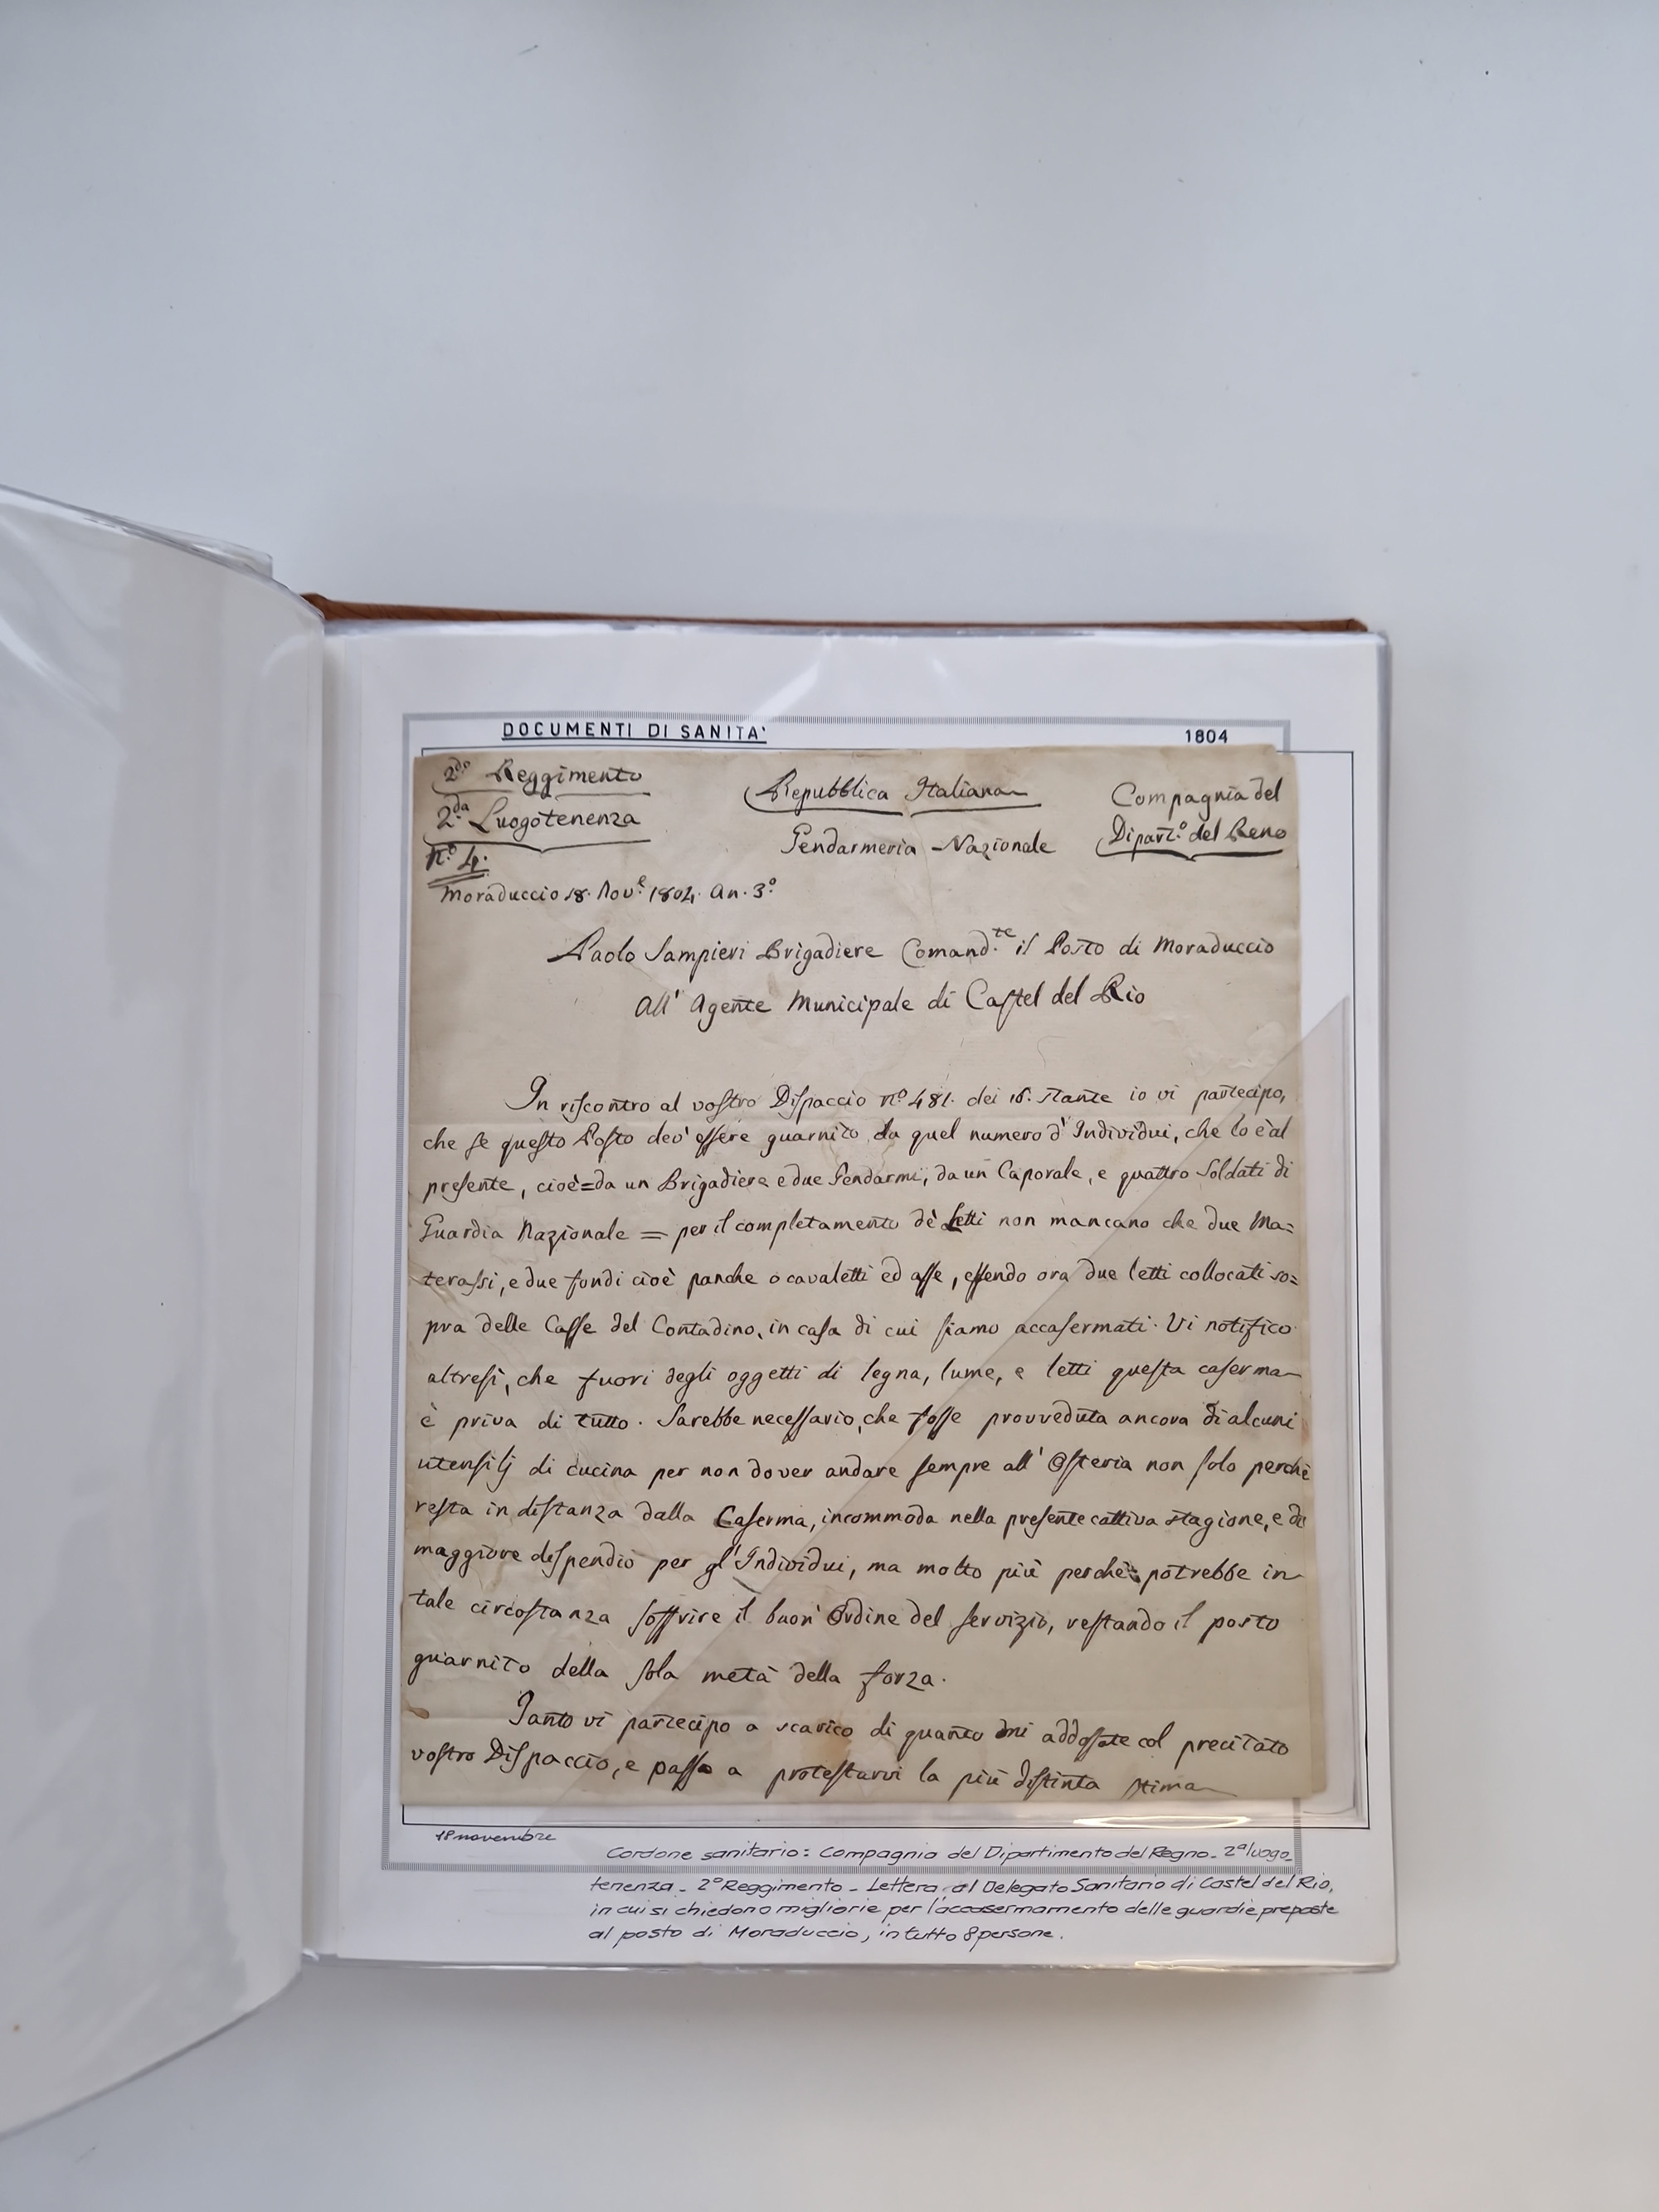 DOCUMENTI DI SANITA'
1804
2.do Reggimento
2.da Luogotenenza
n.º 4.
Repubblica Italiana
Gendarmeria Nazionale
Compagnia del
Dipart.º del Reno
Moraduccio 18. Nov.e 1804. An. 3.º
Paolo Sampieri Brigadiere Comand.te il Posto di Moraduccio
All' Agente Municipale di Castel del Rio
In riscontro al vostro Dispaccio n.º 481. dei 16. stante io vi partecipo,
che se questo Posto dev' essere guarnito da quel numero d' Individui, che lo è al
presente, cioè=da un Brigadiere e due Gendarmi, da un Caporale, e quattro Soldati di
Guardia Nazionale = per il completamento dè Letti non mancano che due Ma=
terassi, e due fondi cioè panche o cavaletti ed asse, essendo ora due letti collocati so=
pra delle Casse del Contadino, in casa di cui siamo accasermati. Vi notifico
altresì, che fuori degli oggetti di legna, lume, e letti questa caserma
è priva di tutto. Sarebbe necessario, che fosse provveduta ancora di alcuni
utensilj di cucina per non dover andare sempre all' Osteria non solo perchè
resta in distanza dalla Caserma, incommoda nella presente cattiva stagione, e di
maggiore dispendio per gl' Individui, ma molto più perchè potrebbe in
tale circostanza soffrire il buon' Ordine del servizio, restando il posto
guarnito della sola metà della forza.
Tanto vi partecipo a scarico di quanto mi addossate col precitato
vostro Dispaccio, e passo a protestarvi la più distinta stima
18 novembre
Cordone sanitario: Compagnia del Dipartimento del Regno - 2ª luogo_
tenenza - 2º Reggimento - Lettera al Delegato Sanitario di Castel del Rio,
in cui si chiedono migliorie per l'accasermamento delle guardie preposte
al posto di Moraduccio, in tutto 8 persone.